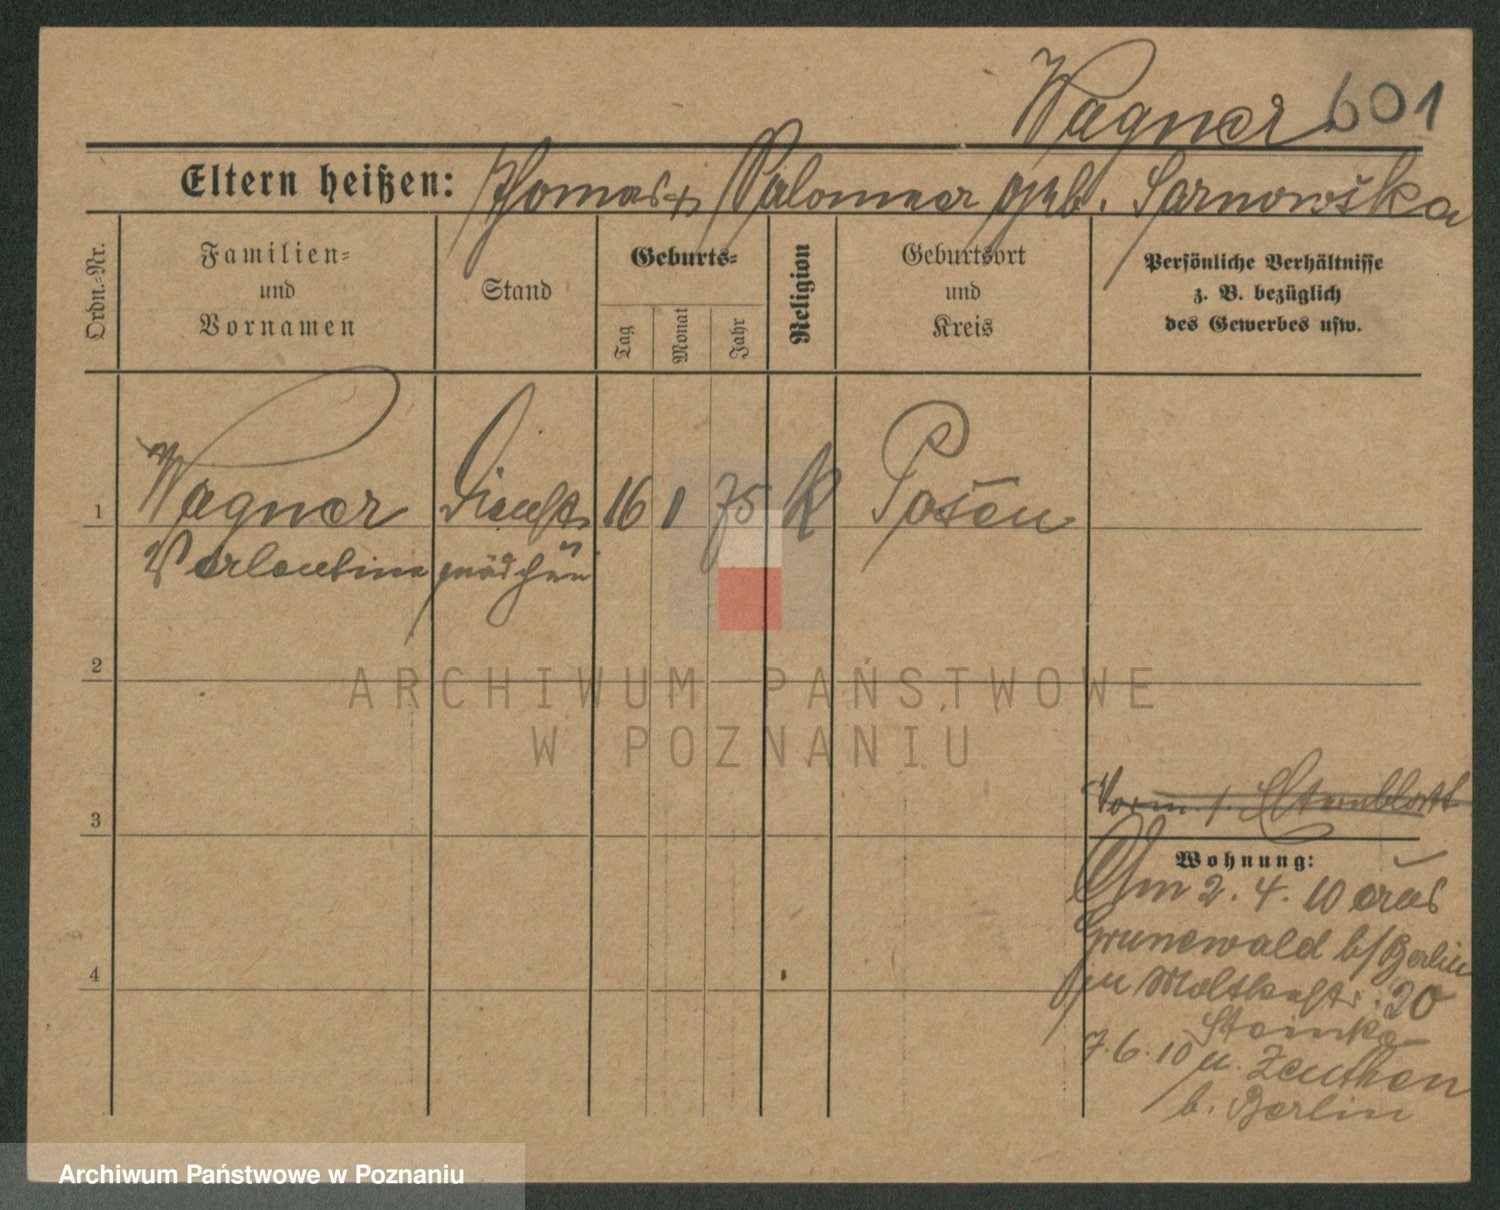 Wagner 601
Eltern heißen: Thomas geb. Sarnowska
Ordn.-Nr.
Familien-
und
Vornamen
Stand
Geburts-
Tag
Monat
Jahr
Religion
Geburtsort
und
Kreis
Persönliche Verhältnisse
z. B. bezüglich
des Gewerbes usw.
1 Wagner Dienst 16 1 75 K Posen
Valentine mädchen
2
ARCHIWUM PAŃSTWOWE
W POZNANIU
3
Vorm. s. Elternblatt
Wohnung:
Am 2. 4. 10 aus
Grunewald b/Berlin
zu Moltkestr. 20
7. 6. 10 n. Zeuthen
b. Berlin
4
Archiwum Państwowe w Poznaniu